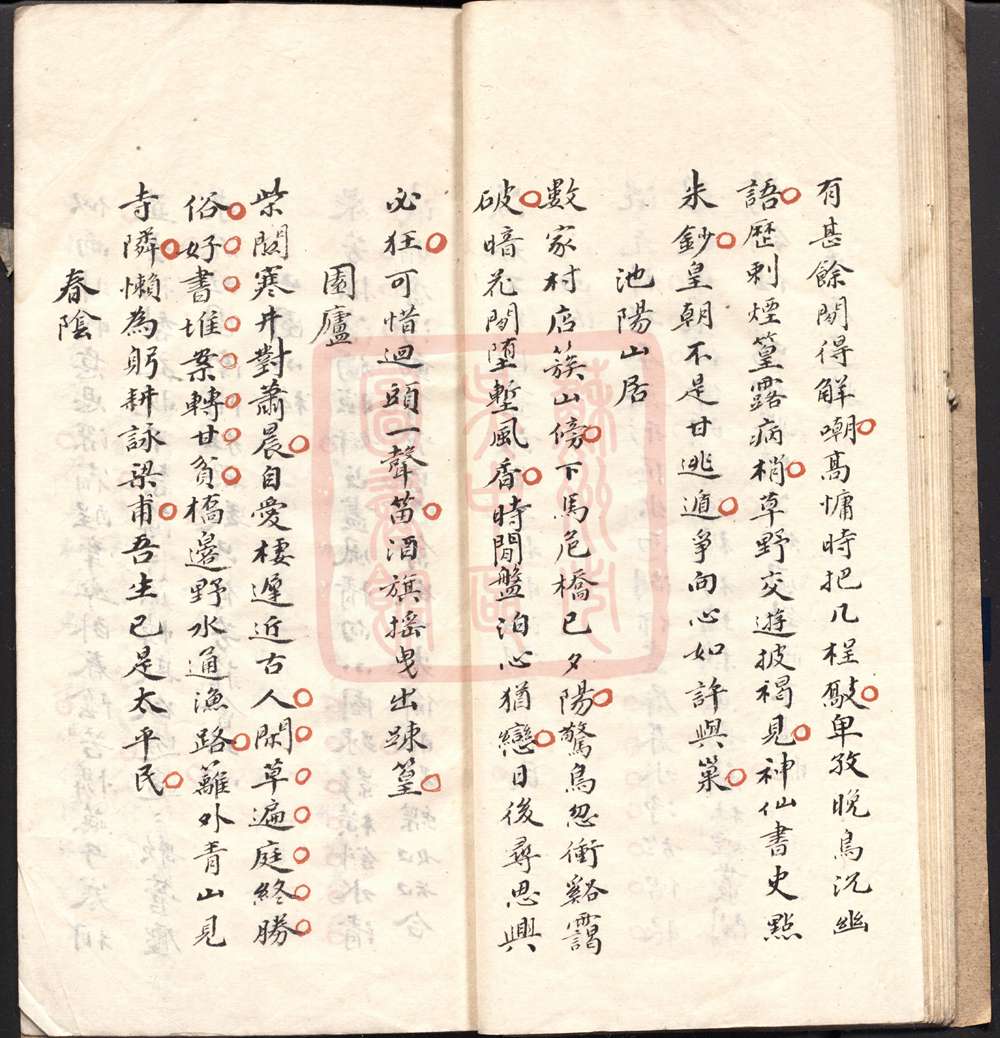 有甚餘閒得解嘲高慵時把几桯敲卑孜晚鳥沉幽
語歷剌煙篁露病梢草野交遊披褐見神仙書史點
朱鈔皇朝不是甘逃遁爭向心如許與巢
池陽山居
數家村店簇山傍下馬危橋已夕陽驚鳥忽衝谿靄
破暗花閒墮塹風香時間盤泊心猶戀日後尋思興
必狂可惜迴頭一聲笛酒旗搖曳出竦篁
園廬
柴關寒井對蕭晨自愛棲遲近古人閑草遍庭終勝
俗好書堆案轉甘貧橋邊野水通漁路蘺外青山見
寺隣懶為躬耕詠梁甫吾生已是太平民
春陰